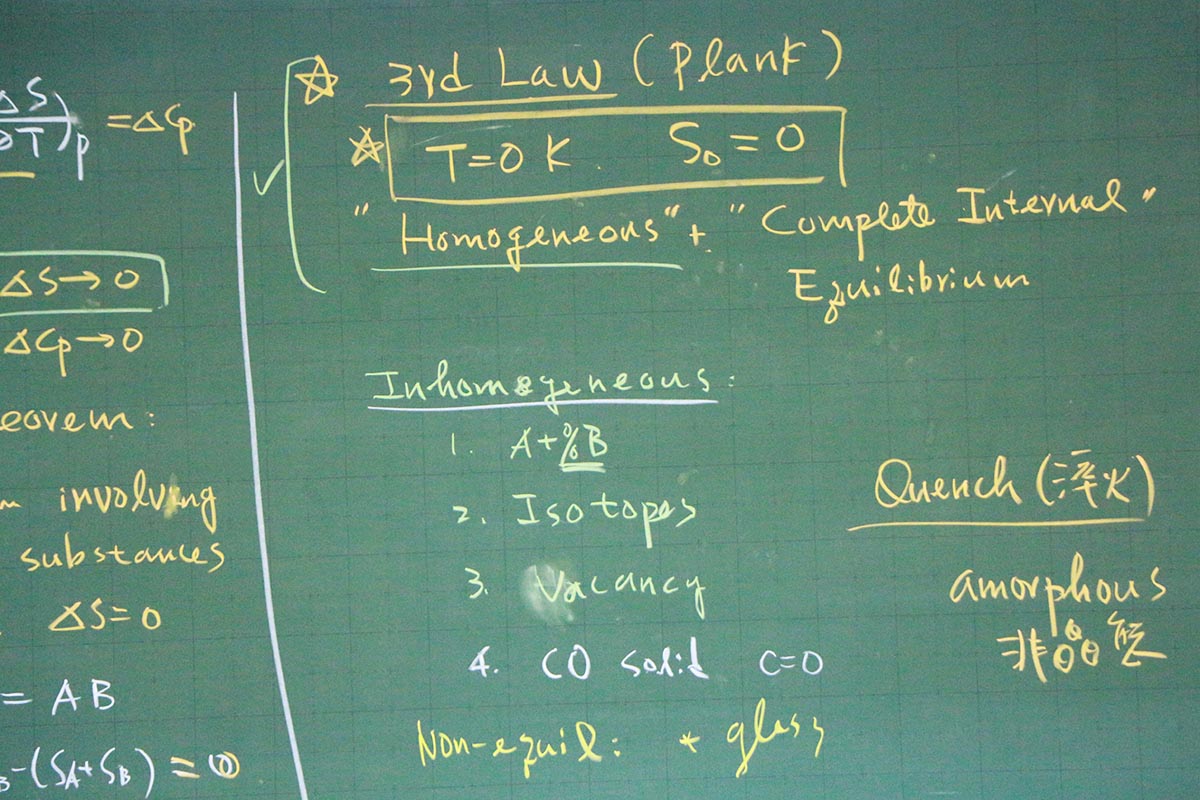 ΔS
∂T)p = ΔCp
ΔS→0
ΔCp→0
eorem:
involving
substances
ΔS=0
= AB
B-(SA+SB) = 0
☆ 3rd Law (Plank)
☆ T=0 K. S₀=0
"Homogeneous" + "Complete Internal"
Equilibrium
Inhomogeneous:
1. A+%B
2. Isotopes
3. Vacancy
4. CO solid C=O
Non-equil: * glass
Quench (淬火)
amorphous
非晶態